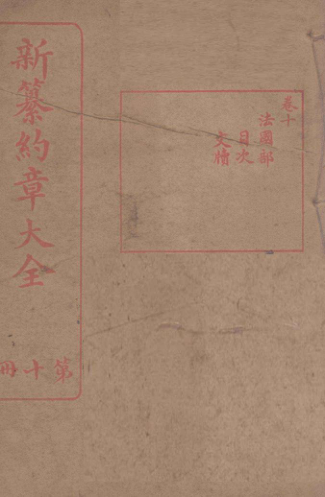 卷十
法國部
目次
文牘
新纂約章大全
第十冊